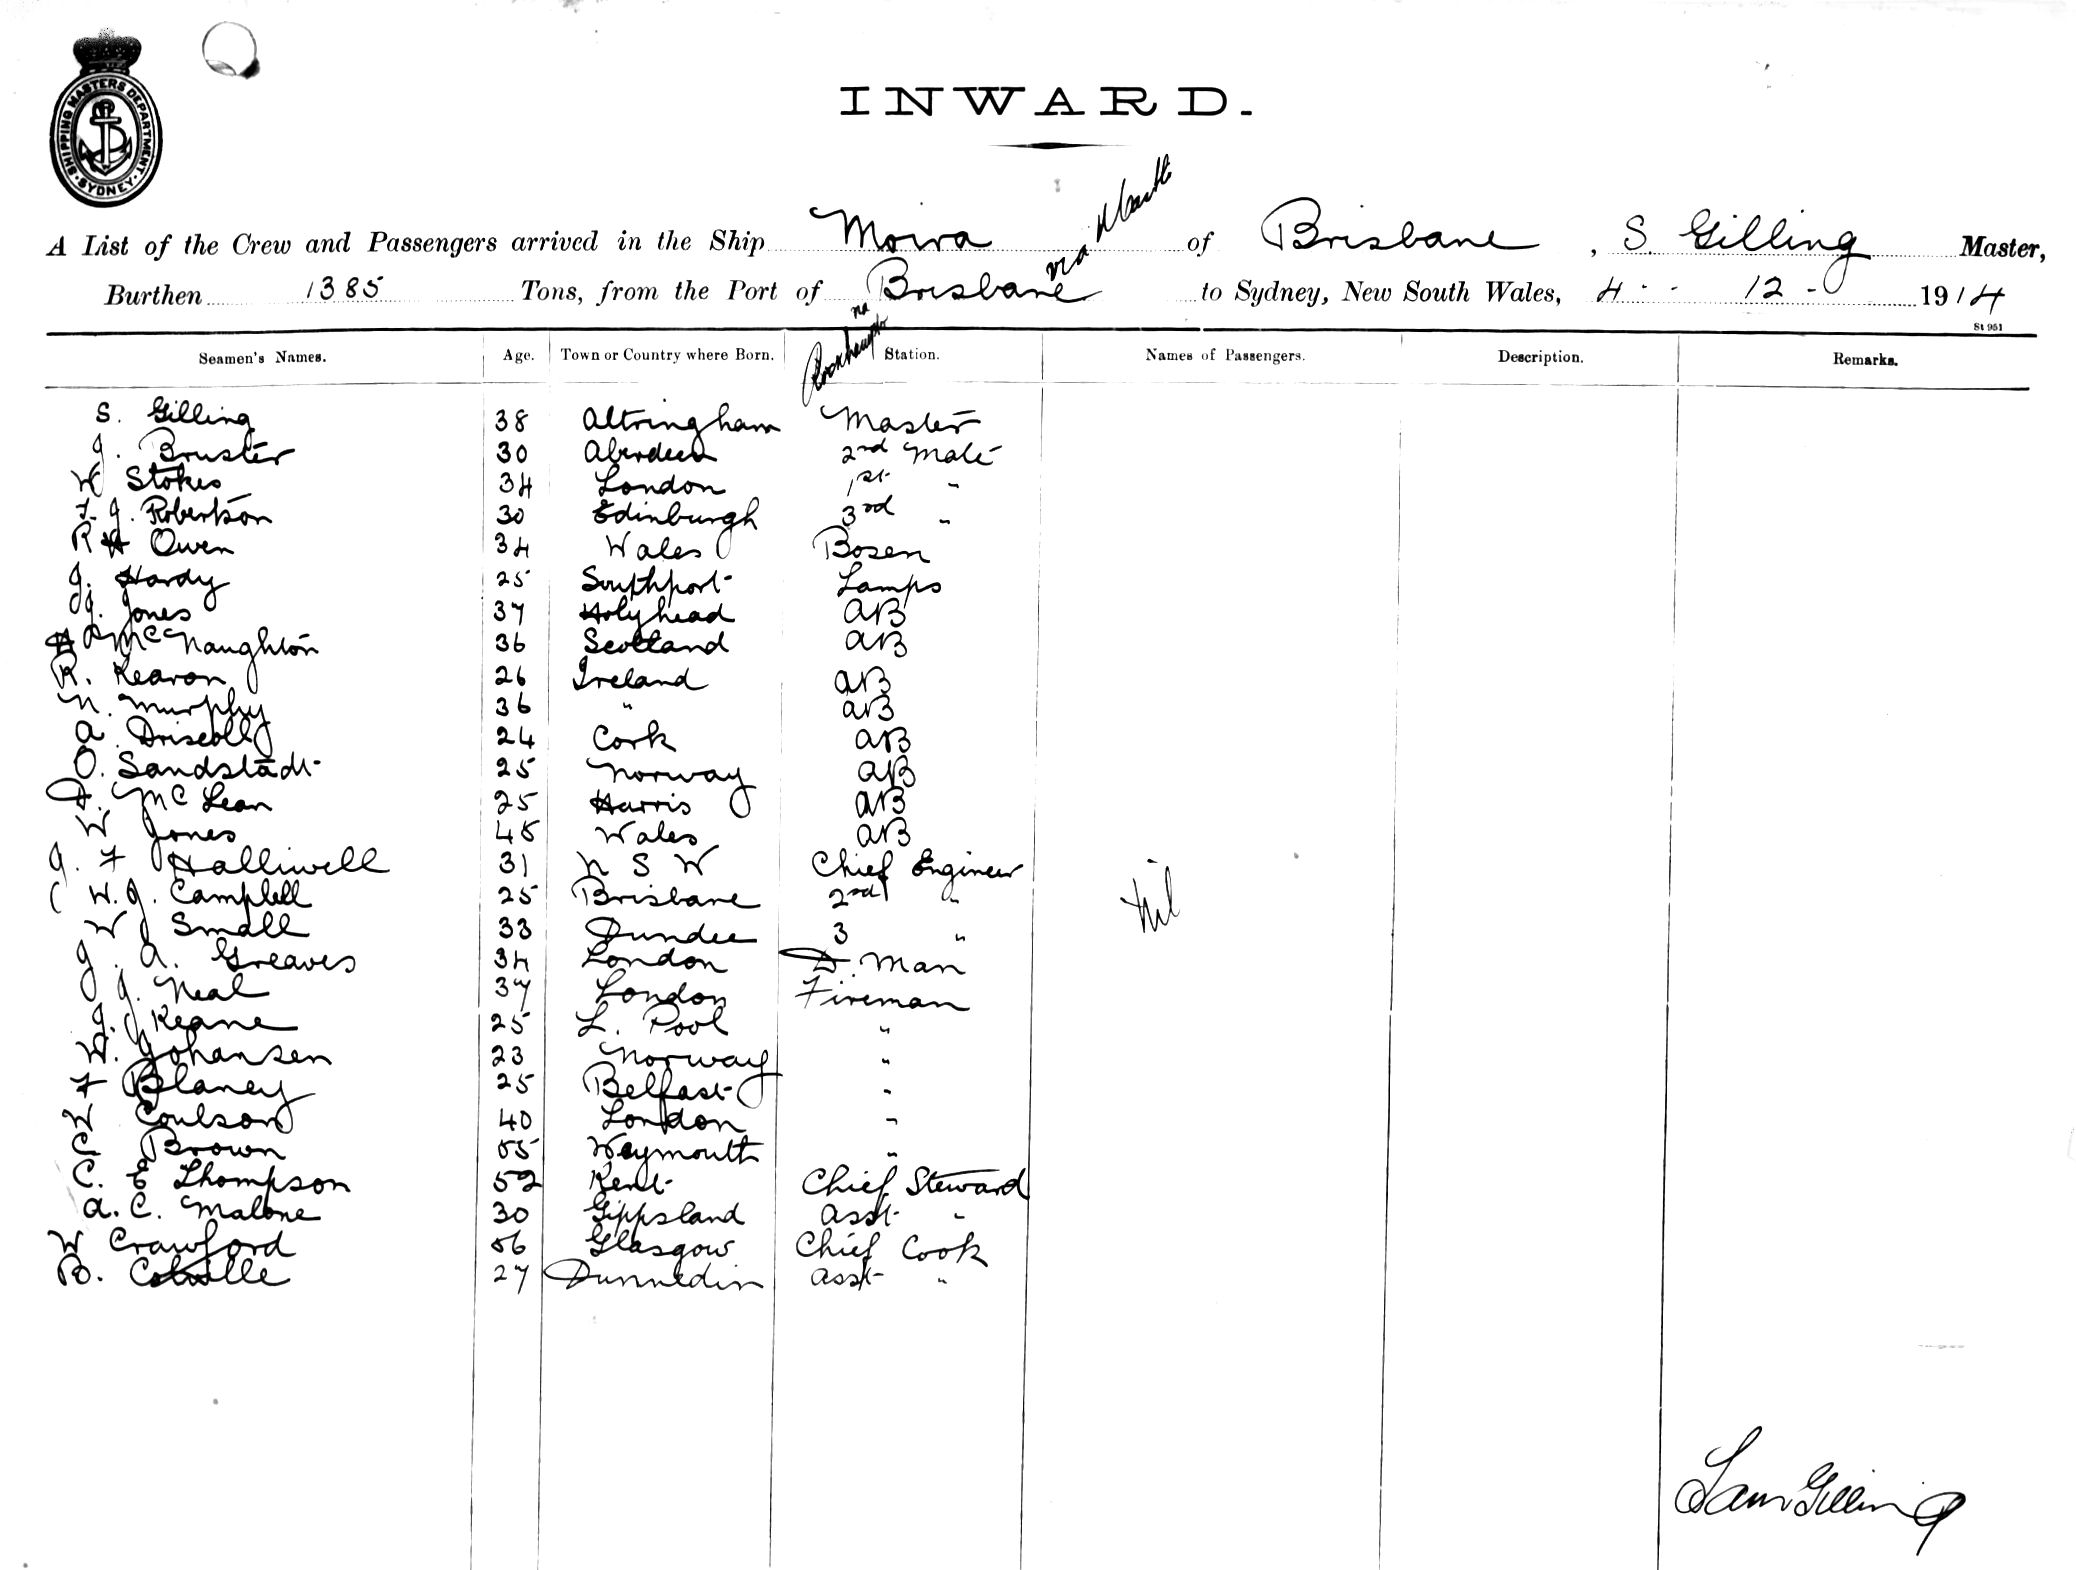 SHIPPING MASTERS DEPARTMENT. SYDNEY.
INWARD.
A List of the Crew and Passengers arrived in the Ship Moira of Brisbane, S. Gilling Master,
via N Castle
Burthen 1385 Tons, from the Port of Brisbane to Sydney, New South Wales, 4 - - 12 - 1914
St 951
Seamen's Names. Age. Town or Country where Born. Station. Names of Passengers. Description. Remarks.
S. Gilling 38 Altringham Master
J. Bruster 30 Aberdeen 2nd Mate
W Stokes 34 London 1st "
F. J. Robertson 30 Edinburgh 3rd "
R H Owen 34 Wales Bosen
J. Hardy 25 Southport Lamps
J. Jones 37 Holyhead AB
McNaughton 36 Scotland AB
R. Kearon 26 Ireland AB
N. Murphy 36 " AB
A. Driscoll 24 Cork AB
O. Sandstadt 25 Norway AB
D. McLean 25 Harris AB
W Jones 45 Wales AB
J. F Halliwell 31 N S W Chief Engineer
W. J. Campbell 25 Brisbane 2nd "
Nil
W Small 33 Dundee 3 "
J. A. Greaves 34 London D. Man
J. Neal 37 London Fireman
J. Keane 25 L. Pool "
W. Johansen 23 Norway "
F Blaney 25 Belfast "
W Coulson 40 London "
C Brown 55 Weymouth "
C. E Thompson 52 Kent Chief Steward
A. C. Malone 30 Gippsland Asst "
W Crawford 56 Glasgow Chief Cook
B. Colville 27 Dunnedin Asst "
Sam Gilling